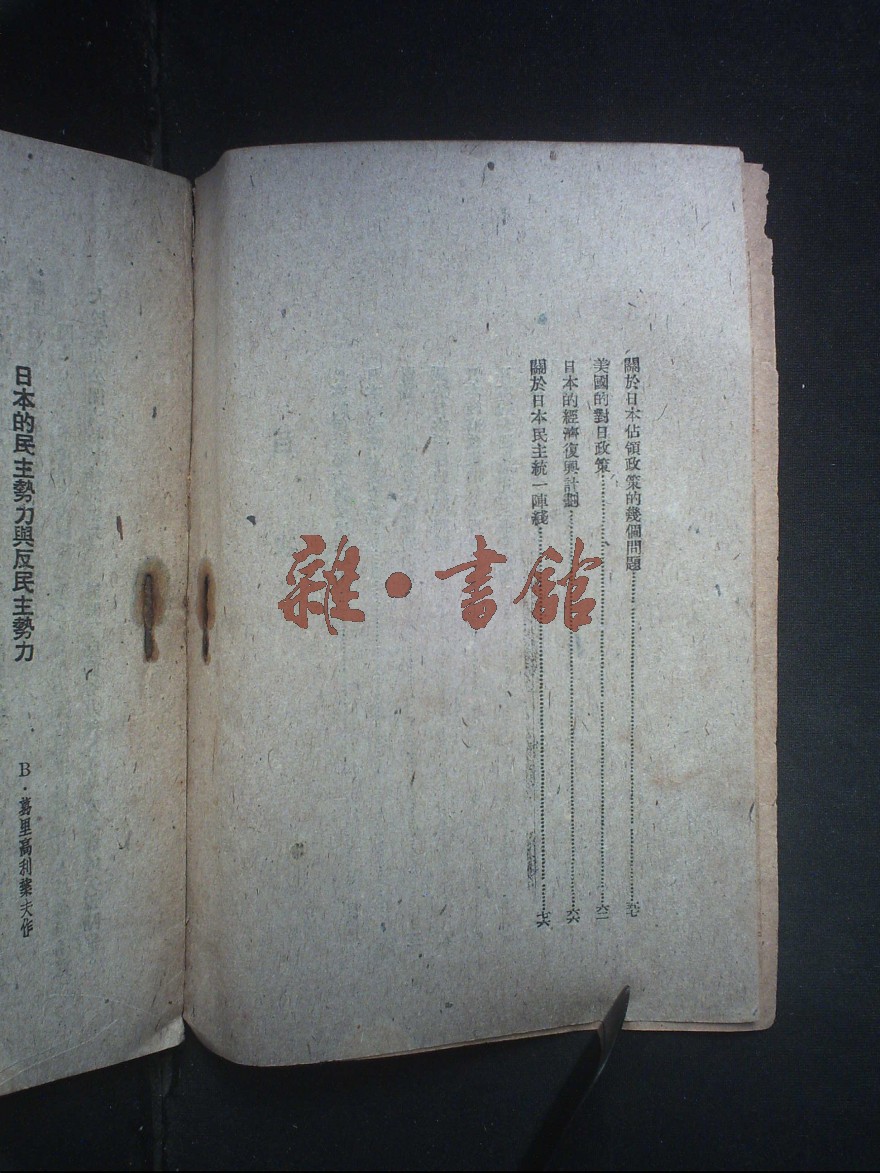 關於日本佔領政策的幾個問題……五七
美國的對日政策……六二
日本的經濟復興計劃……六六
關於日本民主統一陣綫……七六
日本的民主勢力與反民主勢力
B·葛里高利葉夫作
雜·書館